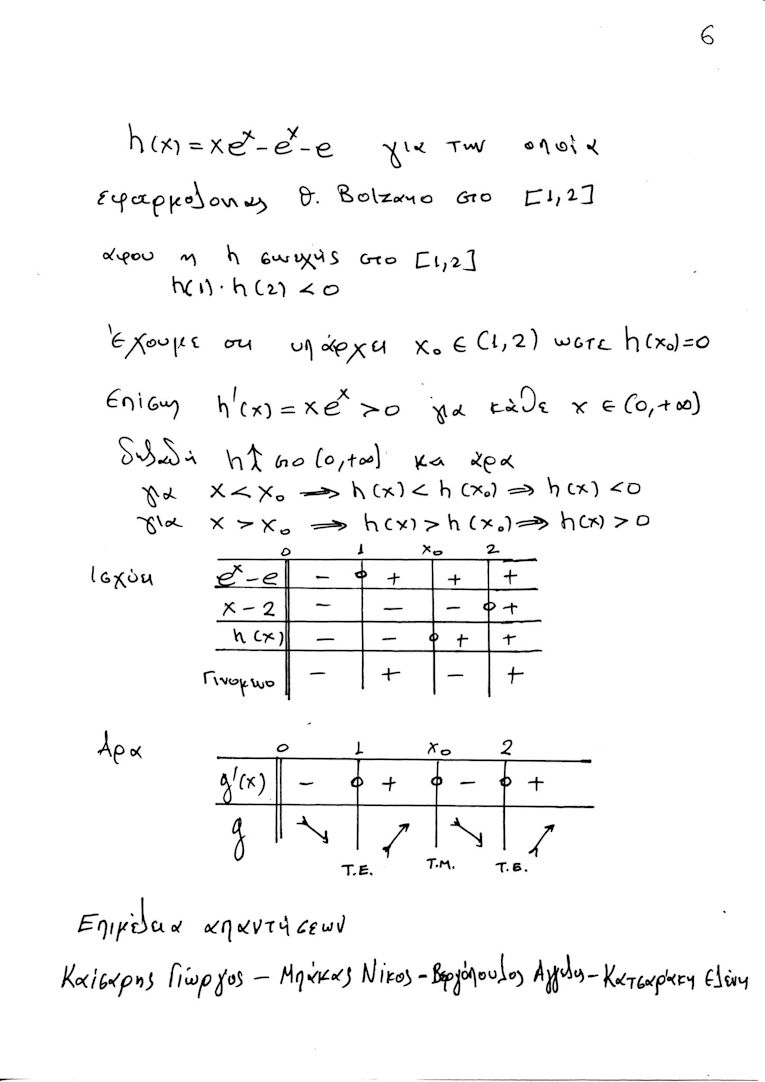 6
h(x) = xeˣ - eˣ - e για την οποία
εφαρμόζοντας θ. Bolzano στο [1,2]
αφου η h συνεχής στο [1,2]
h(1)·h(2) < 0
Έχουμε οτι υπάρχει x₀ ∈ (1,2) ωστε h(x₀)=0
Επίσης h'(x) = xeˣ > 0 για κάθε x ∈ (0,+∞)
δηλαδή h↑ στο [0,+∞) και άρα
για x < x₀ ⇒ h(x) < h(x₀) ⇒ h(x) < 0
για x > x₀ ⇒ h(x) > h(x₀) ⇒ h(x) > 0
0 1 x₀ 2
Ισχύει eˣ-e - 0 + + +
x-2 - - - 0 +
h(x) - - 0 + +
Γινομενο - + - +
Αρα 0 1 x₀ 2
g'(x) - 0 + 0 - 0 +
g ↘ ↗ ↘ ↗
Τ.Ε. Τ.Μ. Τ.Ε.
Επιμέλεια απαντήσεων
Καίσαρης Γιώργος - Μπάκας Νίκος - Βεργόπουλος Αγγελής - Κατσαράκη Ελένη